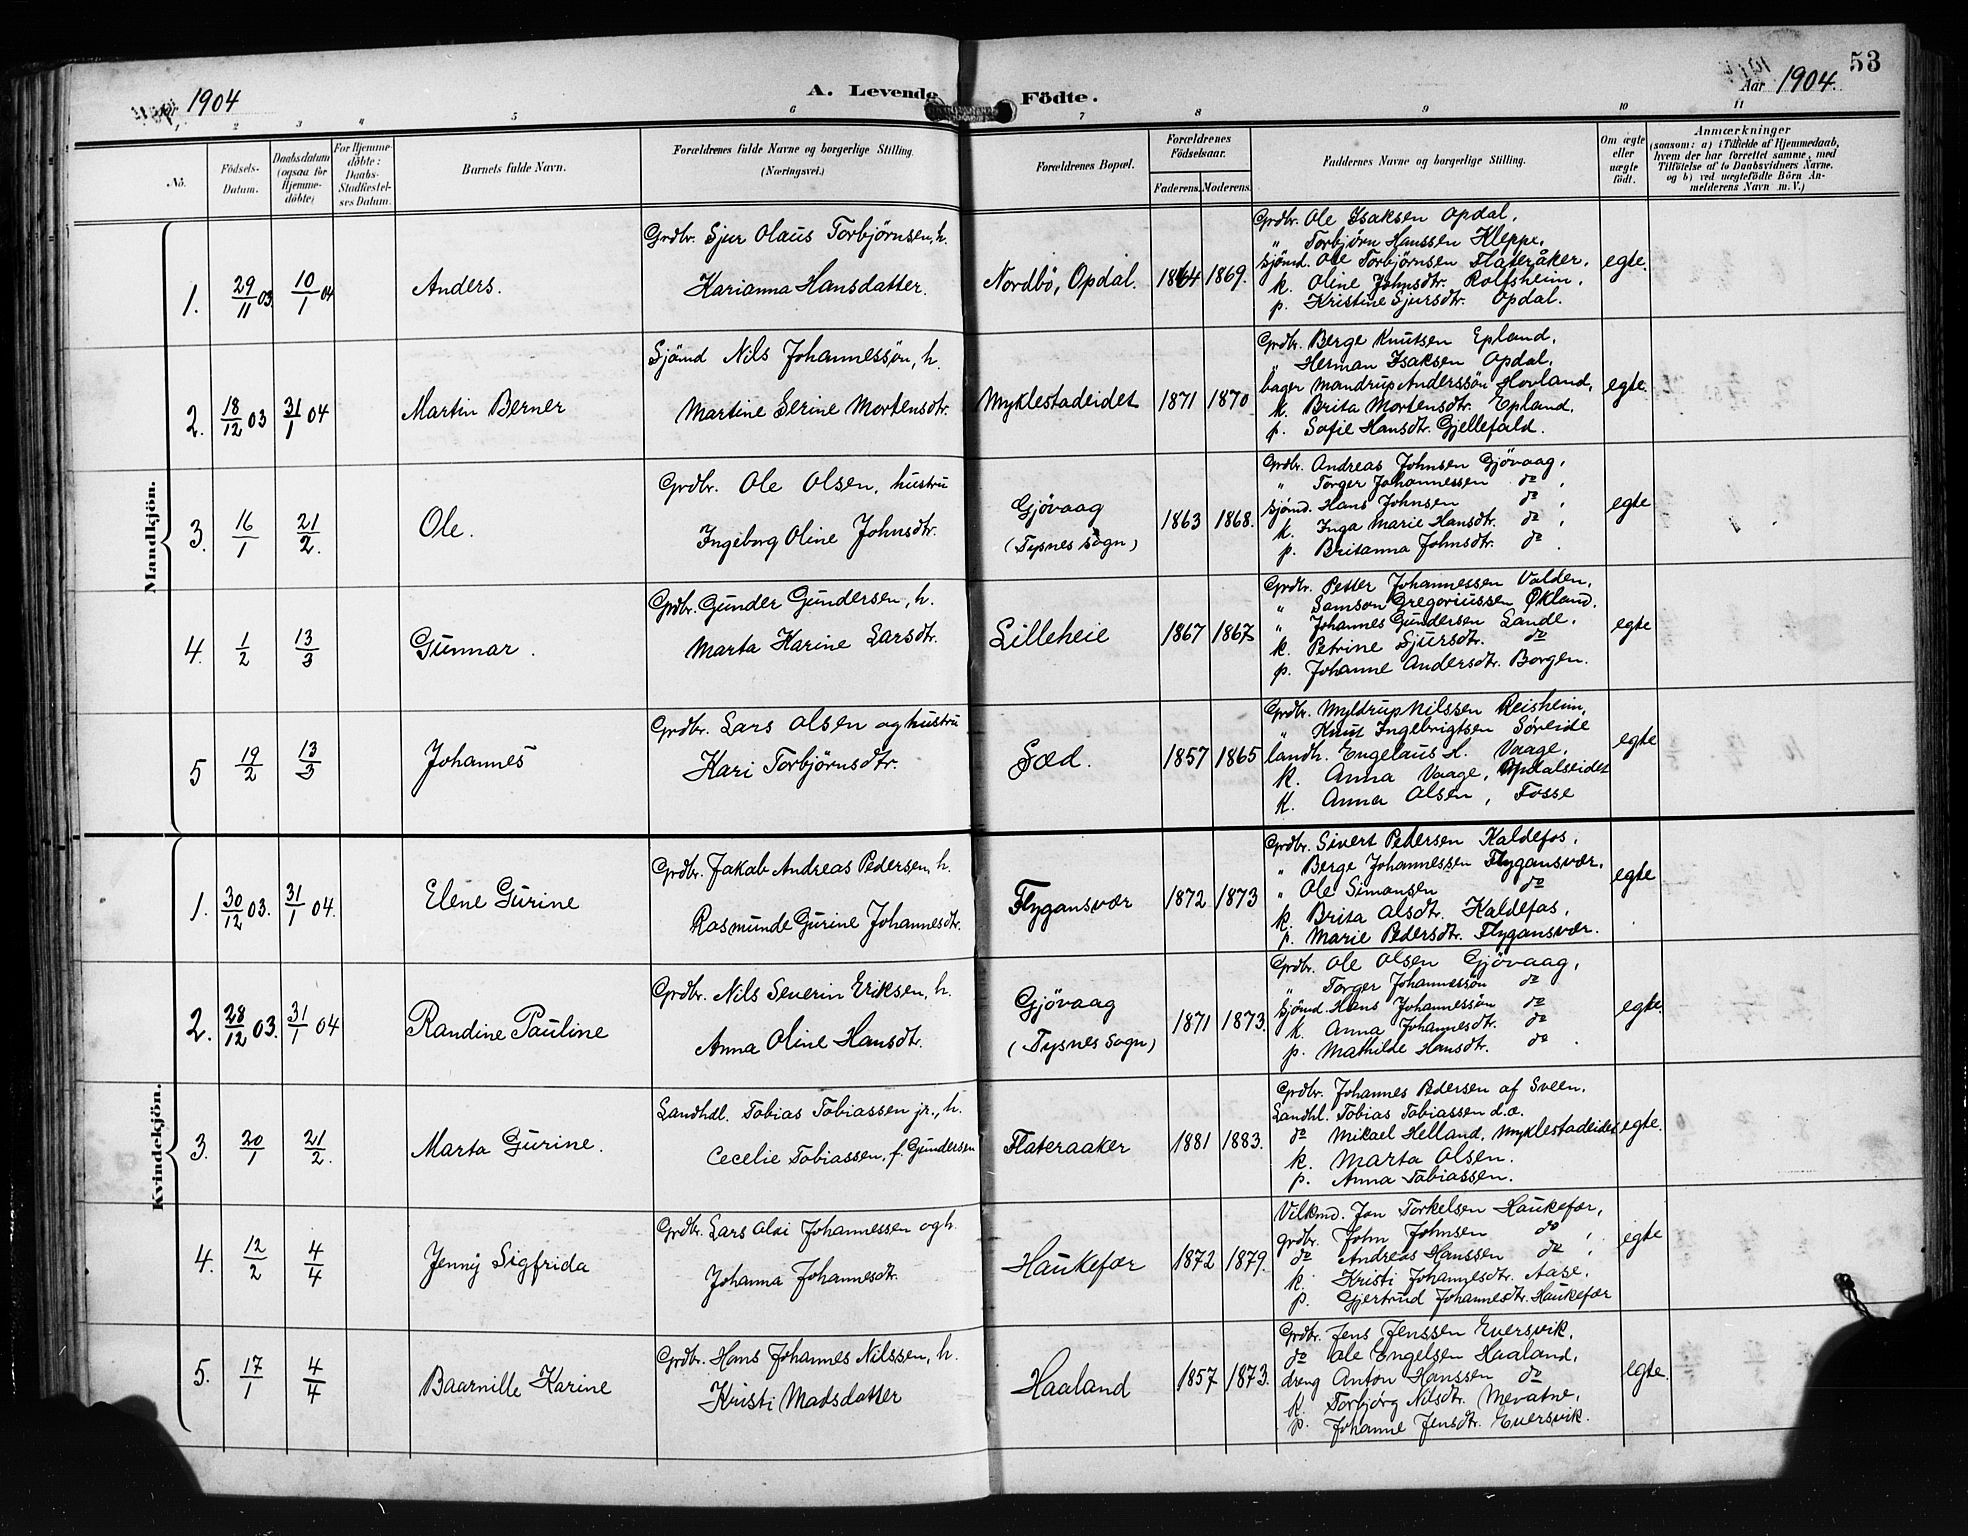 53
Aar 1904
A. Levende Födte.
Aar 1904.
1 2 3 4 5 6 7 8 9 10 11
No.
Födsels-Datum.
Daabsdatum (ogsaa for Hjemme-döbte)
For Hjemme-döbte: Daabs-Stadfæstel-ses Datum.
Barnets fulde Navn.
Forældrenes fulde Navne og borgerlige Stilling. (Næringsvei.)
Forældrenes Bopæl.
Forældrenes Födselsaar.
Faderens. Moderens.
Faddernes Navne og borgerlige Stilling.
Om ægte eller uægte født.
Anmærkninger
(saasom: a) i Tilfælde af Hjemmedaab, hvem der har forrettet samme, med Tilföielse af to Daabsvidners Navne. og b) ved uægtefödte Börn An-melderens Navn m. V.)
Mandkjön.
1. 29/11 03 10/1 04 Anders.
Grdbr. Sjur Olaus Torbjörnsen, h.
Karianna Hansdatter.
Nordbö, Opdal. 1864 1869.
Grdbr. Ole Isaksen Opdal,
" Torbjörn Hanssen Kleppe,
sjömd. Ole Torbjörnsen Flateråker,
k. Oline Johnsdtr. Rolfsheim,
p. Kristine Sjursdtr. Opdal.
egte.
2. 18/12 03 31/1 04 Martin Berner
Sjömd Nils Johannessön, h.
Martine Serine Mortensdtr.
Myklestadeidet 1871 1870
Grdbr. Berge Knutsen Epland,
" Herman Isaksen Opdal,
bager Mandrup Anderssön Hovland,
k. Brita Mortensdtr. Epland,
p. Sofie Hansdtr. Gjellefald.
egte.
3. 16/1 21/2. Ole.
Grdbr. Ole Olsen, hustru
Ingeborg Oline Johnsdtr.
Gjövaag
(Tysnes Sogn)
1863 1868.
Grdbr. Andreas Johnsen Gjövaag,
" Torger Johannessen do,
sjömd. Hans Johnsen do,
k. Inga Marie Hansdtr. do,
p. Britanna Johnsdtr. do.
egte
4. 1/2 13/3 Gunnar.
Grdbr. Gunder Gundersen, h.
Marta Karine Larsdtr.
Lilleheie 1867 1867
Grdbr. Petter Johannessen Valden,
" Samson Gregoriussen Økland.
" Johannes Gundersen Lande,
k. Petrine Sjursdtr. do
p. Johanne Andersdtr. Borgen.
egte
5 19/2 13/3 Johannes
Grdbr. Lars Olsen og hustru
Kari Torbjörnsdtr.
Sæd. 1857 1865
Grdbr. Myldrup Nilssen Reisheim,
" Knut Ingebrigtsen Söreide
landh. Engelaus H. Vaage,
k. Anna Vaage, Opdalseidet
k. Anna Olsen, Fosse
egte
Kvindekjön.
1. 30/12 03. 31/1 04. Elene Gurine
Grdbr. Jakob Andreas Pedersen, h.
Rasmunde Gurine Johannesdtr.
Flygansvær 1872 1873
Grdbr. Sivert Pedersen Kaldefos,
" Berge Johannessen Flygansvær,
" Ole Simonsen do
k. Brita Olsdtr. Kaldefos,
p. Marie Pedersdtr. Flygansvær.
egte
2. 28/12 03. 31/1 04 Randine Pauline
Grdbr. Nils Severin Eriksen, h.
Anna Oline Hansdtr.
Gjövaag
(Tysnes Sogn)
1871 1873.
Grdbr. Ole Olsen Gjövaag,
" Torger Johannessön do
Sjömd. Hans Johannessön do
k. Anna Johannesdtr. do
p. Mathilde Hansdtr. do.
egte.
3. 20/1 21/2. Marta Gurine.
Landhdl. Tobias Tobiassen jr., h.
Cecelie Tobiassen, f. Gundersen
Flateraaker 1881 1883.
Grdbr. Johannes Pedersen af Sveen.
Landhl. Tobias Tobiassen d.æ.
do Mikael Helland, Myklestadeidet
k. Marta Olsen.
p. Anna Tobiassen.
egte.
4. 12/2 4/4 Jenny Sigfrida
Grdbr. Lars Olai Johannessen og h.
Johanna Johannesdtr.
Haukefær 1872 1879.
Vilkmd. Jon Torkelsen Haukefær,
grdbr. John Johnsen do,
do Andreas Hanssen do,
k. Kristi Johannesdtr. Aase,
p. Gjertrud Johannesdtr. Haukefær
egte
5. 17/1 4/4 Baarnille Karine
Grdbr. Hans Johannes Nilssen, h.
Kristi Madsdatter
Haaland 1857 1873.
Grdbr. Jens Jenssen Eversvik,
do Ole Engelsen Haaland,
dreng Anton Hanssen do
k. Torbjörg Nilsdtr. Mevatne,
p. Johanne Jensdtr. Eversvik.
egte.